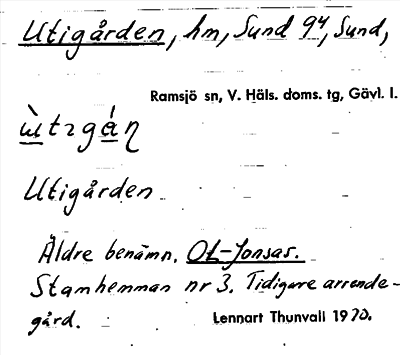 Utigården, hm, Sund 9⁴, Sund,
Ramsjö sn, V. Häls. doms. tg, Gävl. l.
Utigården
Äldre benämn. Ol-Jonsas.
Stamhemman nr 3. Tidigare arrende-
gård.
Lennart Thunvall 1970.